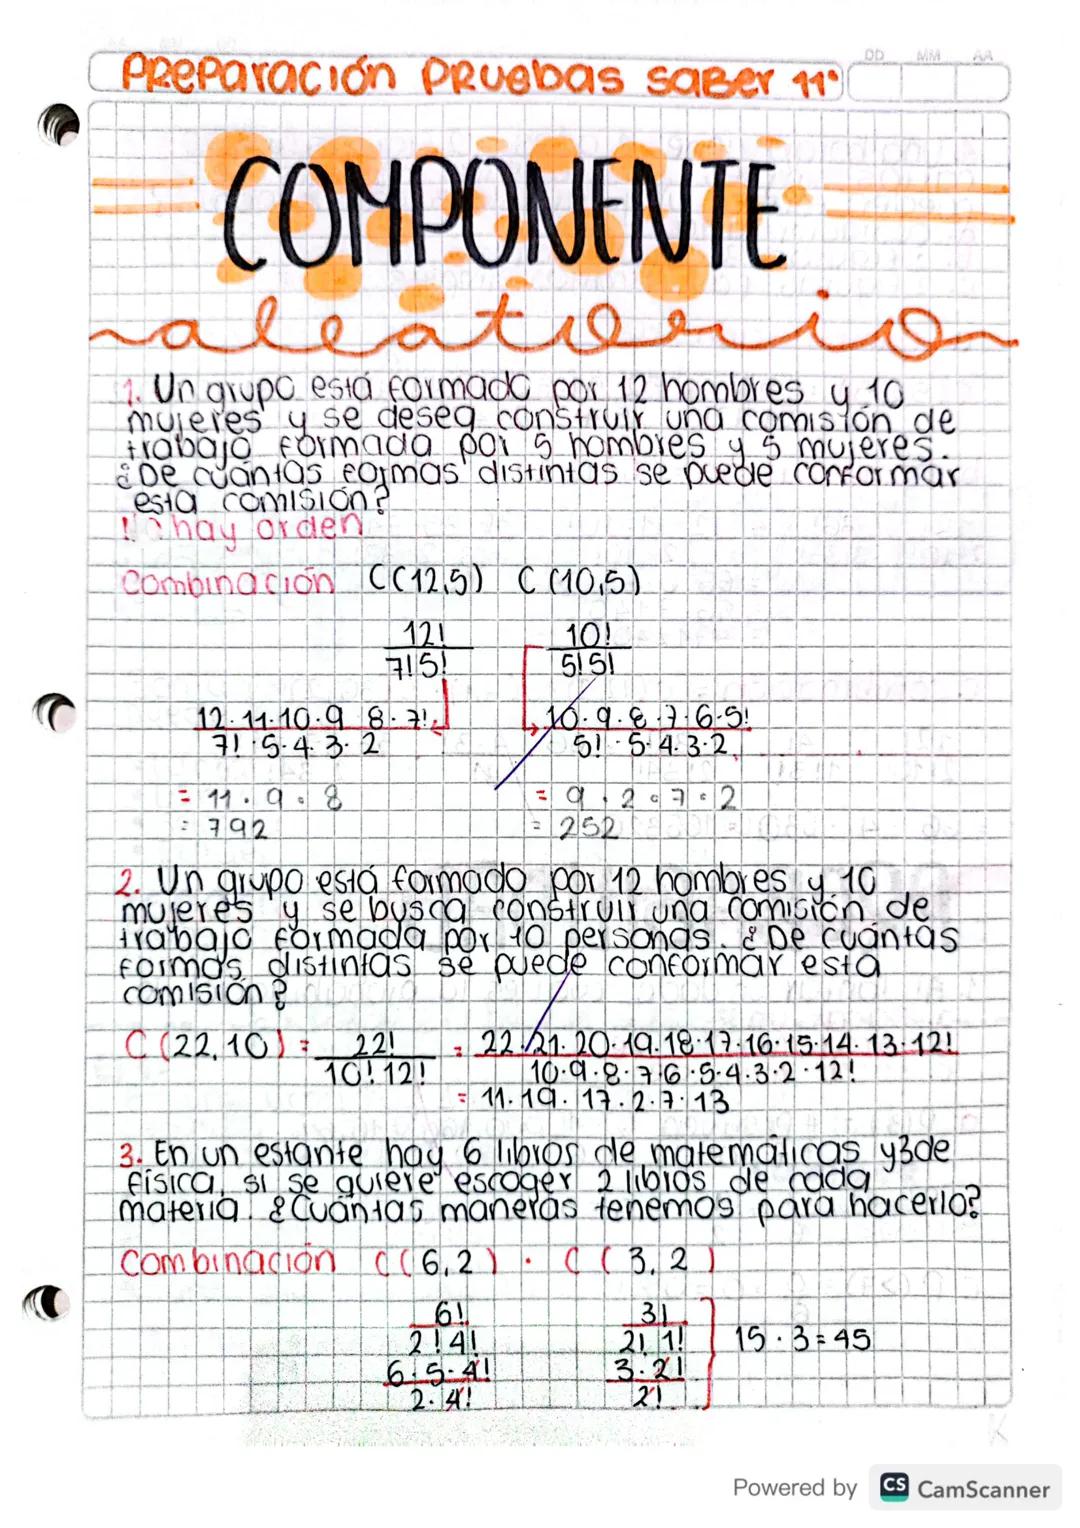 PREPARACIÓN PRUEBAS SABER 11°
DD MM AA
COMPONENTE
aleatorio
1. Un grupo está formado por 12 hombres y 10
mujeres y se desea construir una comisión de
trabajo formada por 5 hombres y 5 mujeres.
¿De cuántas formas distintas se puede conformar
esta comisión?
No hay orden
Combinación C(12,5) C(10,5)
12! 10!
7!5! 5!5!
12·11·10·9 8·7! 10·9·8·7·6·5!
7!·5·4·3·2 5!·5·4·3·2
= 11·9·8 = 9·2·7·2
= 792 = 252
2. Un grupo está formado por 12 hombres y 10
mujeres y se busca construir una comisión de
trabajo formada por 10 personas. ¿De cuántas
formas distintas se puede conformar esta
comisión?
C(22,10) = 22! = 22·21·20·19·18·17·16·15·14·13·12!
10!12! 10·9·8·7·6·5·4·3·2·12!
= 11·19·17·2·7·13
3. En un estante hay 6 libros de matemáticas y 3 de
física, si se quiere escoger 2 libros de cada
materia. ¿Cuántas maneras tenemos para hacerlo?
Combinación C(6,2) · C(3,2)
6! 3!
2!4! 2!1! 15·3=45
6·5·4! 3·2!
2·4! 2!
Powered by CS CamScanner